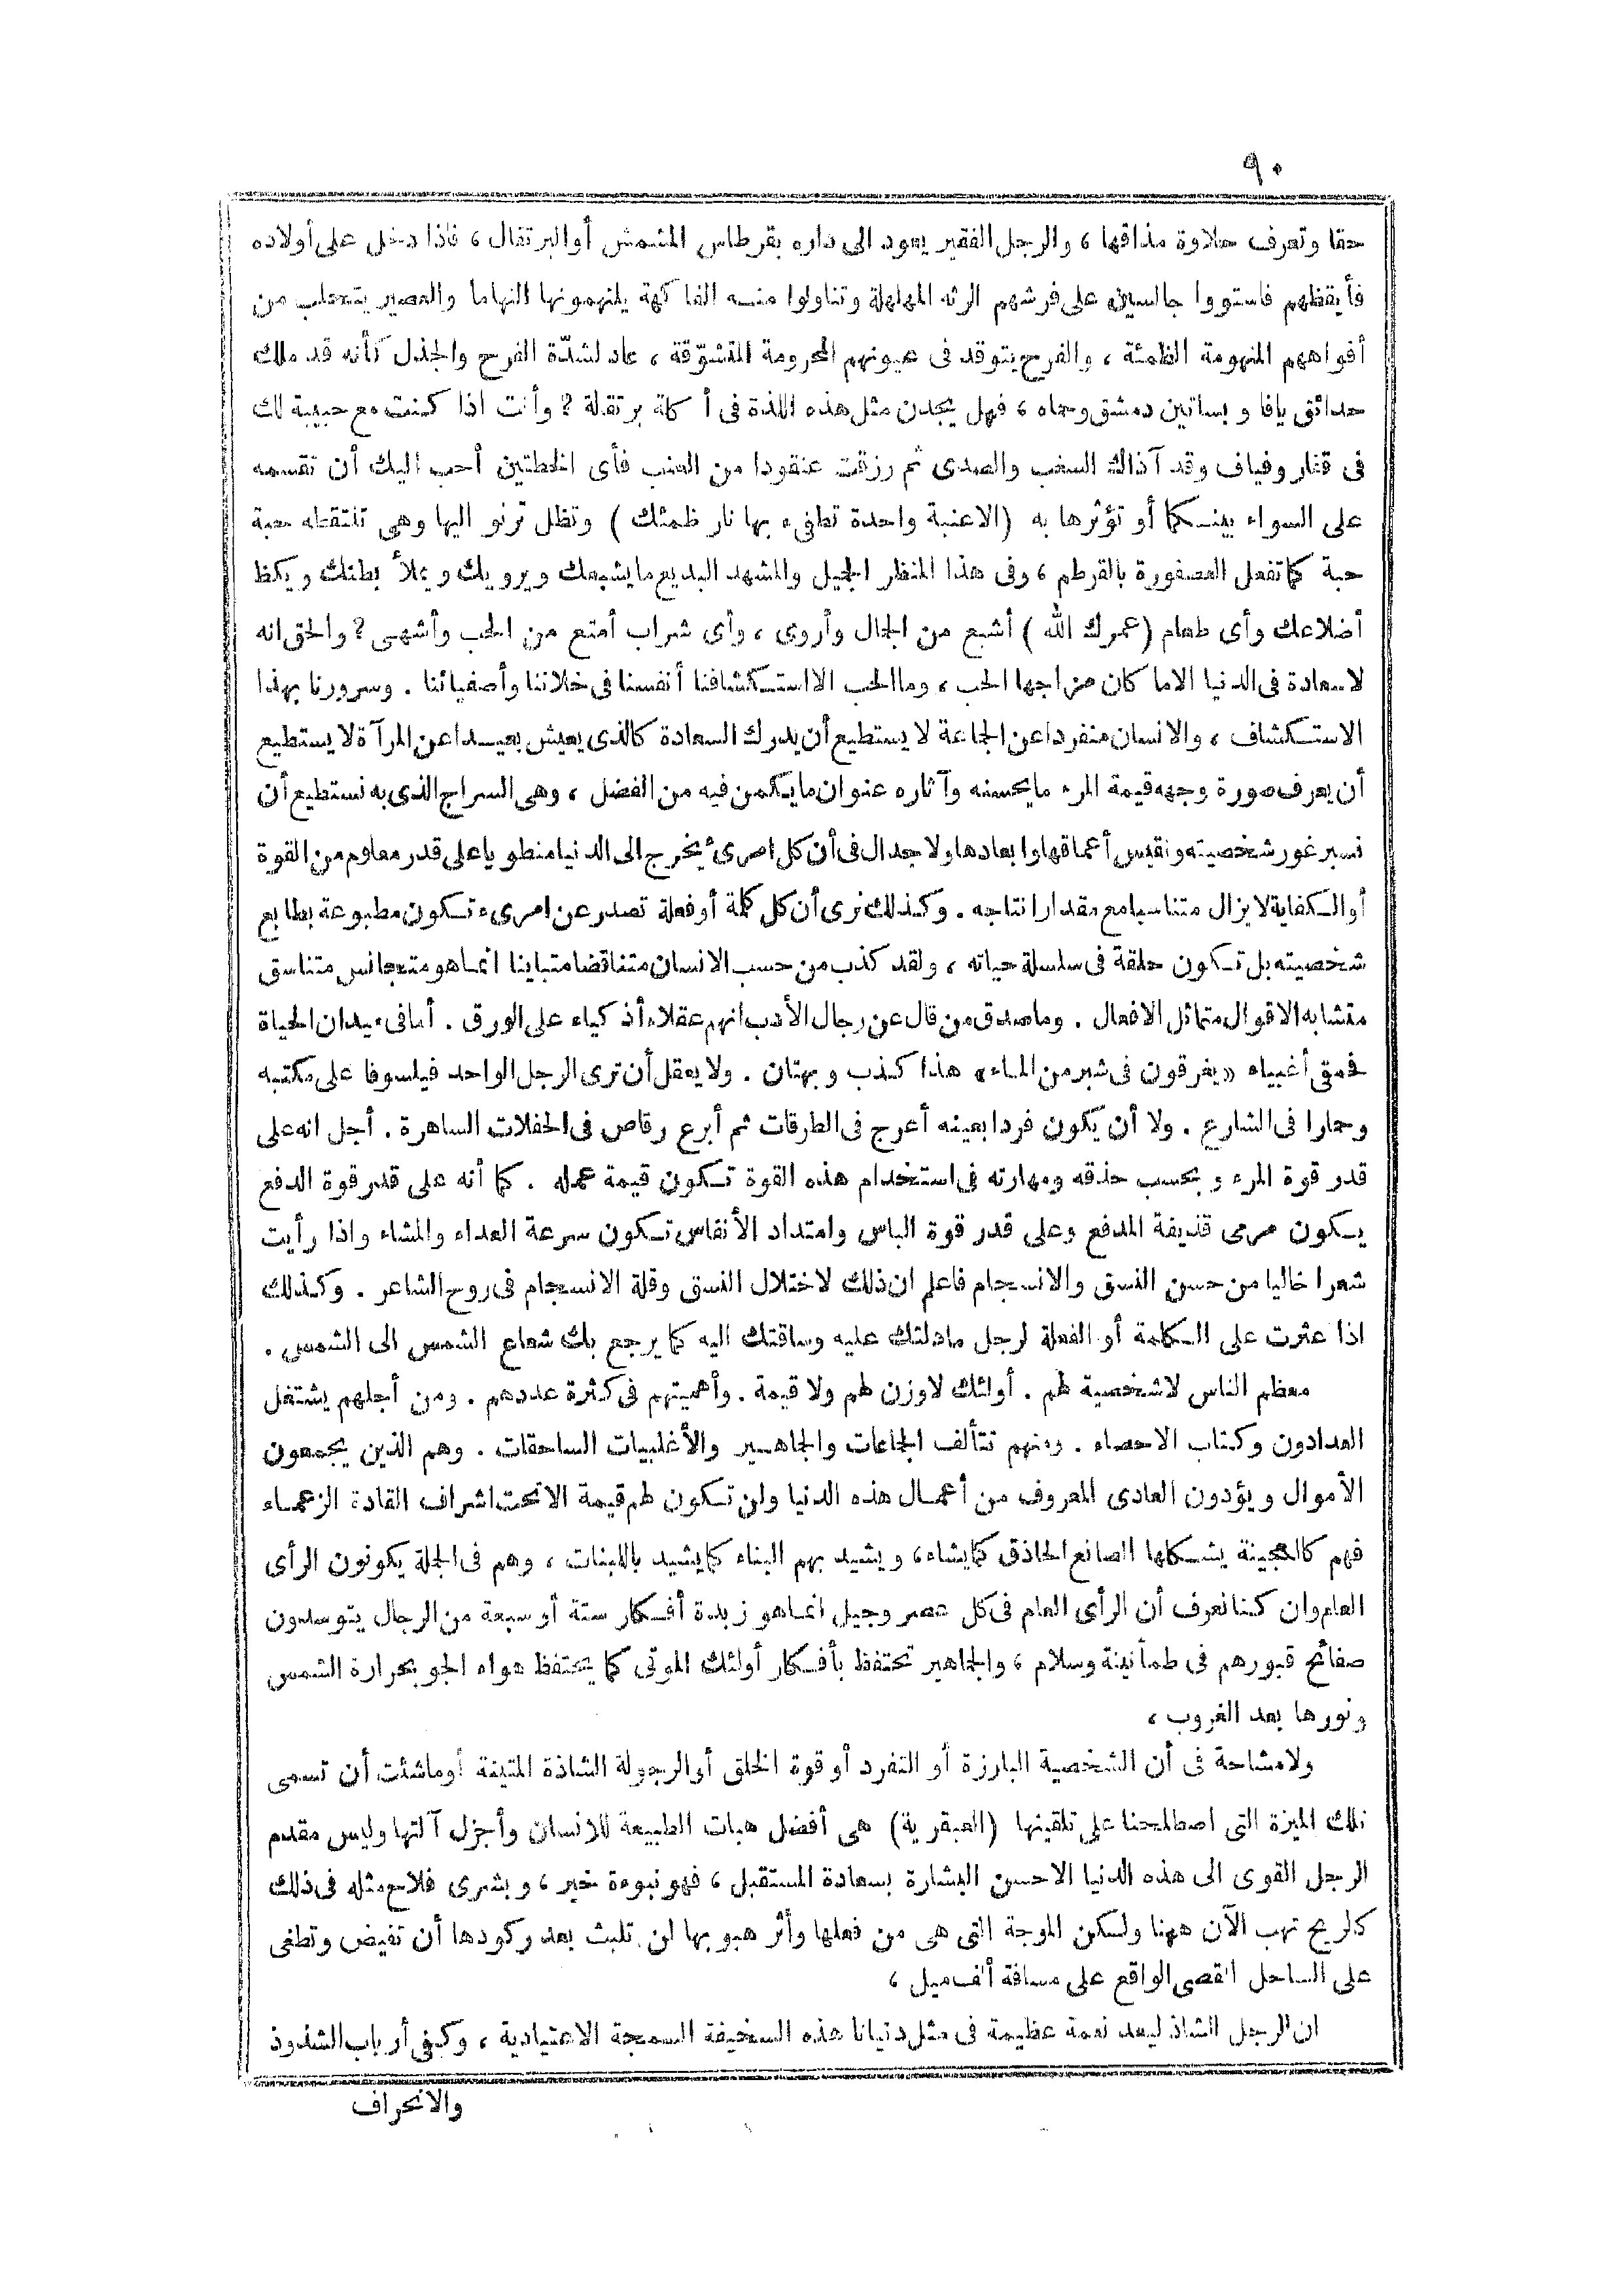 ٩٠
حقا وتعرف حلاوة مذاقها ، والرجل الفقير يعود الى داره بقرطاس المشمش أو البرتقال ، فاذا دخل على أولاده
فأيقظهم فاستووا جالسين على فرشهم الرثه المهلهلة وتناولوا منه الفاكهة يلتهمونها التهاما والعصير يتحلب من
أفواههم المنهومة الظمئة ، والفرح يتوقد فى عيونهم المحرومة المتشوّقة ، عاد لشدّة الفرح والجذل كأنه قد ملك
حدائق يافا وبساتين دمشق وحماه ، فهل يجدن مثل هذه اللذة فى أكلة برتقلة ؟ وأنت اذا كنت مع حبيبة لك
فى قفار وفياف وقد آذاك السغب والصدى ثم رزقت عنقودا من العنب فأى الخطتين أحب اليك أن تقسمه
على السواء بينكما أو تؤثرها به (الا عنبة واحدة تطفىء بها نار ظمئك) وتظل ترنو اليها وهى تلتقطه حبة
حبة كما تفعل العصفورة بالقرطم ، وفى هذا المنظر الجميل والمشهد البديع ما يشبعك ويرويك ويملأ بطنك ويكظ
أضلاعك وأى طعام (عمرك الله) أشبع من الجمال وأروى ، وأى شراب أمتع من الحب وأشهى ؟ والحق انه
لا سعادة فى الدنيا الا ما كان مزاجها الحب ، وما الحب الا استكشافنا أنفسنا فى خلاننا وأصفيائنا . وسرورنا بهذا
الاستكشاف ، والانسان منفردا عن الجماعة لا يستطيع أن يدرك السعادة كالذى يعيش بعيدا عن المرآة لا يستطيع
أن يعرف صورة وجهه قيمة المرء ما يحسنه وآثاره عنوان ما يكمن فيه من الفضل ، وهى السراج الذى به نستطيع أن
نسبر غور شخصيته ونقيس أعماقها وابعادها ولا جدال فى أن كل امرئ يخرج الى الدنيا منطويا على قدر معلوم من القوة
أو الكفاية لا يزال متناسبا مع مقدار انتاجه . وكذلك نرى أن كل كلمة أو فعلة تصدر عن امرىء تكون مطبوعة بطابع
شخصيته بل تكون حلقة فى سلسلة حياته ، ولقد كذب من حسب الانسان متناقضا متباينا انما هو متجانس متناسق
متشابه الاقوال متماثل الافعال . وما صدق من قال عن رجال الأدب انهم عقلاء أذكياء على الورق . أما فى ميدان الحياة
فحمقى أغبياء «يغرقون فى شبر من الماء» هذا كذب وبهتان . ولا يعقل أن ترى الرجل الواحد فيلسوفا على مكتبه
وحمارا فى الشارع . ولا أن يكون فردا بعينه أعرج فى الطرقات ثم أبرع رقاص فى الحفلات الساهرة . أجل انه على
قدر قوة المرء وبحسب حذقه ومهارته فى استخدام هذه القوة تكون قيمة عمله . كما أنه على قدر قوة الدفع
يكون مرمى قذيفة المدفع وعلى قدر قوة الباس وامتداد الأنفاس تكون سرعة العداء والمشاء واذا رأيت
شعرا خاليا من حسن النسق والانسجام فاعلم ان ذلك لاختلال النسق وقلة الانسجام فى روح الشاعر . وكذلك
اذا عثرت على الكلمة أو الفعلة لرجل ما دلتك عليه وساقتك اليه كما يرجع بك شعاع الشمس الى الشمس .
معظم الناس لا شخصية لهم . أولئك لا وزن لهم ولا قيمة . وأهميتهم فى كثرة عددهم . ومن أجلهم يشتغل
العدادون وكتاب الاحصاء . ومنهم تتألف الجماعات والجماهير والأغلبيات الساحقات . وهم الذين يجمعون
الأموال ويؤدون العادى المعروف من أعمال هذه الدنيا ولن تكون لهم قيمة الا تحت اشراف القادة الزعماء
فهم كالعجينة يشكلها الصانع الحاذق كما يشاء ، ويشيد بهم البناء كما يشيد باللبنات ، وهم فى الجملة يكونون الرأى
العام وان كنا نعرف أن الرأى العام فى كل عصر وجيل انما هو زبدة أفكار ستة أو سبعة من الرجال يتوسدون
صفائح قبورهم فى طمأنينة وسلام ، والجماهير تحتفظ بأفكار أولئك الموتى كما يحتفظ هواء الجو بحرارة الشمس
ونورها بعد الغروب ،
ولا مشاحة فى أن الشخصية البارزة أو التفرد أو قوة الخلق أو الرجولة الشاذة المتينة أو ما شئت أن تسمى
تلك الميزة التى اصطلحنا على تلقينها (العبقرية) هى أفضل هبات الطبيعة للانسان وأجزل آلتها وليس مقدم
الرجل القوى الى هذه الدنيا الا حسن البشارة بسعادة المستقبل ، فهو نبوءة خير ، وبشرى فلاح مثله فى ذلك
كالريح تهب الآن ههنا ولكن الموجة التى هى من فعلها وأثر هبوبها لن تلبث بعد ركودها أن تفيض وتطغى
على الساحل القصى الواقع على مسافة ألف ميل ،
ان الرجل الشاذ ليعد نعمة عظيمة فى مثل دنيانا هذه السخيفة السمجة الاعتيادية ، وكفى أرباب الشذوذ
والانحراف